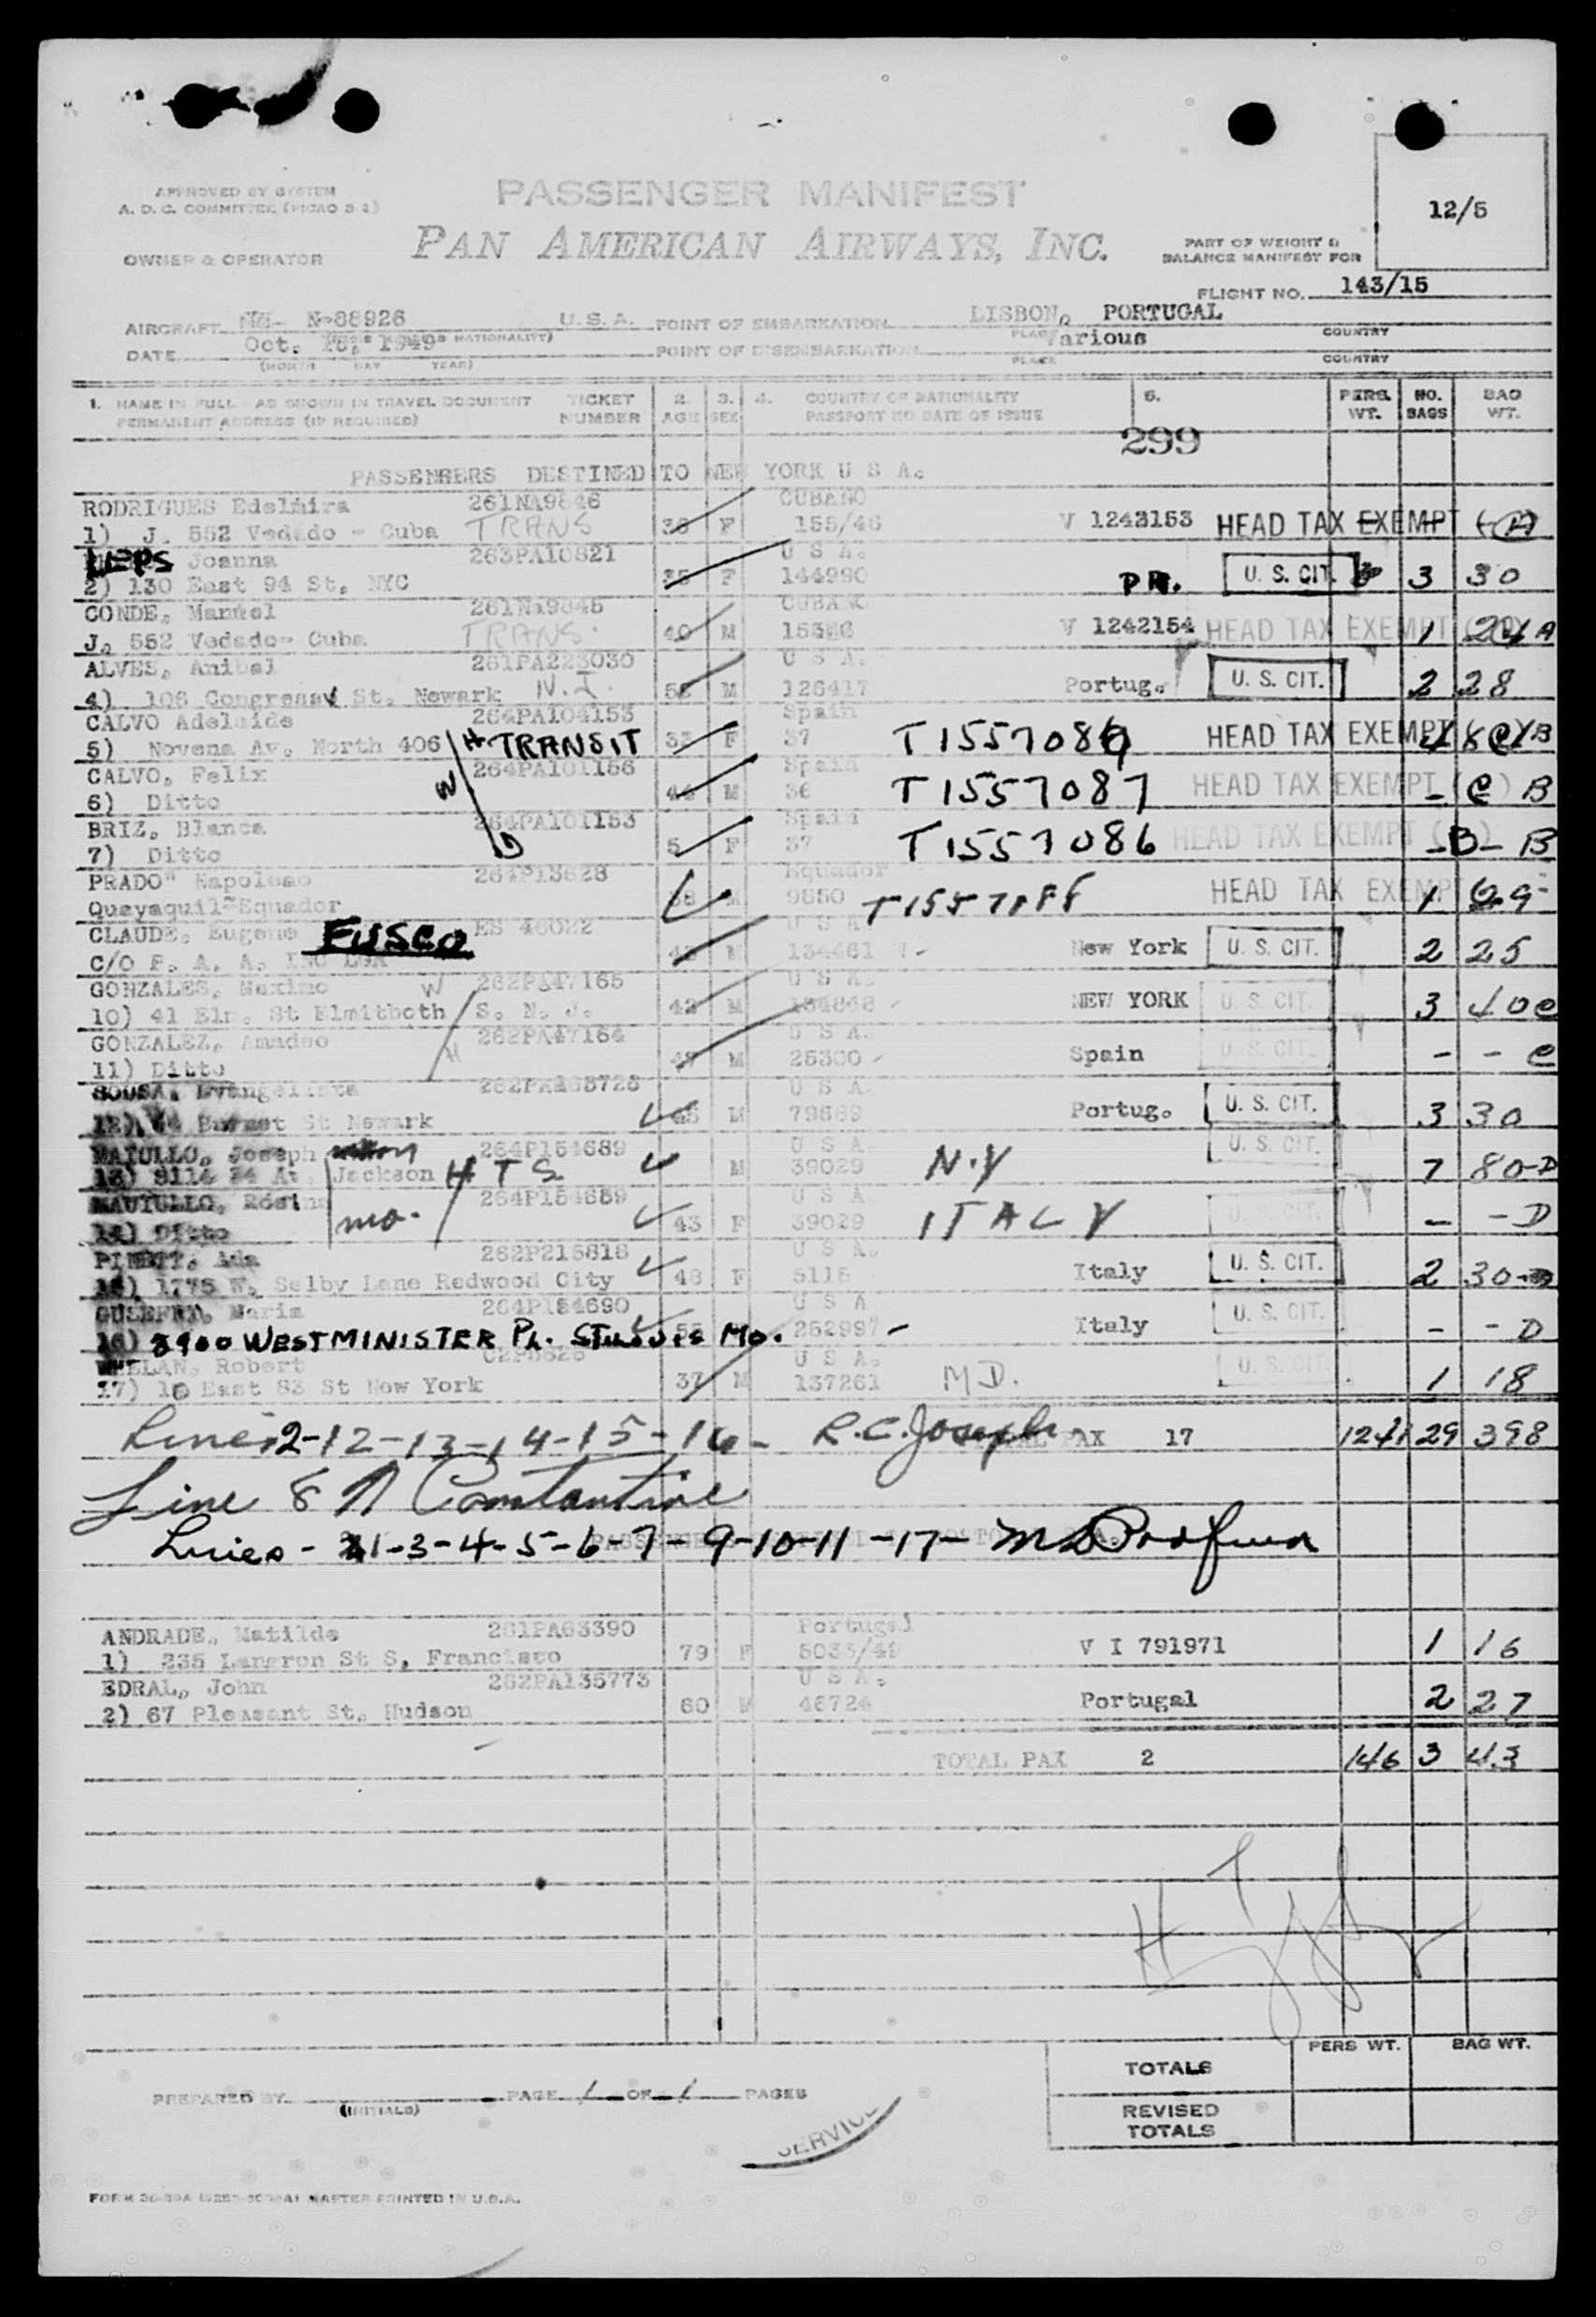 APPROVED BY SYSTEM
A. D. C. COMMITTEE (PICAO 3-2)
PASSENGER MANIFEST
12/5
OWNER & OPERATOR
PAN AMERICAN AIRWAYS, INC.
PART OF WEIGHT &
BALANCE MANIFEST FOR
FLIGHT NO. 143/15
AIRCRAFT N-88926 U.S.A. POINT OF EMBARKATION LISBON, PORTUGAL
NATIONALITY) PLACE COUNTRY
DATE Oct. 1949 POINT OF DISEMBARKATION Various
(MONTH DAY YEAR) PLACE COUNTRY
1. NAME IN FULL - AS SHOWN IN TRAVEL DOCUMENT TICKET 2. 3. 4. COUNTRY OF NATIONALITY 5. PERS. NO. BAG
PERMANENT ADDRESS (IF REQUIRED) NUMBER AGE SEX PASSPORT NO DATE OF ISSUE WT. BAGS WT.
299
PASSENGERS DESTINED TO NEW YORK U S A.
RODRIGUES Edelmira 261NA9846 CUBANO
1) J. 552 Vedado - Cuba TRANS 38 F 155/46 V 1243153 HEAD TAX EXEMPT (A)
LEPS Joanna 263PA10821 U S A.
2) 130 East 94 St. NYC 35 F 144990 PR. U. S. CIT. 3 30
CONDE, Manuel 261NA9845 CUBANO
J. 552 Vedado- Cuba TRANS. 40 M V 1242154 HEAD TAX EXEMPT 1 24 A
ALVES, Anibal 261PA223030 U S A.
4) 106 Congress St. Newark N.J. M 126417 Portug. U. S. CIT. 2 28
CALVO Adelaide 264PA104153 Spain
5) Novena Av. North 406 H TRANSIT F 37 HEAD TAX EXEMPT B
CALVO, Felix 264PA101156 Spain
6) Ditto W M 36 T1557087 HEAD TAX EXEMPT (C) - B
BRIZ, Blanca 264PA101153 Spain
7) Ditto D 5 F 37 T1557086 HEAD TAX EXEMPT - B - B
PRADO" Napoleao 264P13628 Equador
Quayaquil-Equador 38 M 9850 HEAD TAX EXEMPT 1 29
CLAUDE, Eugene FUSCO ES 46022 U S A.
C/O P. A. A. M 134461 New York U. S. CIT. 2 25
GONZALES, Maximo W 262PA47165 U S A.
10) 41 Elm. St Elmitboth S. N. J. 42 M NEW YORK U. S. CIT. 3 40 C
GONZALEZ, Amadeo 262PA47164 U S A.
11) Ditto H M 25300 Spain U. S. CIT. - - C
SOUSA, Evangelista U S A.
12) Burnet St Newark 45 M 79689 Portug. U. S. CIT. 3 30
MATULLO, Joseph 264P154689 U S A
13) 8114 34 At. Jackson H T S M 39029 N.Y U. S. CIT. 7 80-D
MAUTULLO, Rosina 264P154689 U S A
14) Ditto Mo. 43 F 39029 ITALY U. S. CIT. - - D
Ada 262P215818 U S A.
15) 1775 W. Selby Lane Redwood City 48 F 5115 Italy U. S. CIT. 2 30
Maria 264P154690 U S A
16) 3900 WESTMINISTER PL. ST LOUIS MO. 252997 - Italy U. S. CIT. - - D
WHELAN, Robert U S A.
17) 10 East 83 St New York 37 M 137261 M D. U. S. CIT. 1 18
Lines 2-12-13-14-15-16- R.C. Joseph TOTAL PAX 17 1241 29 398
Line 8 Constantine
Lines - 1-3-4-5-6-7-9-10-11-17-
ANDRADE, Matilde 261PA63390 Portugal
1) 235 Langron St S. Francisco 79 F 5033/49 V I 791971 1 16
EDRAL, John 262PA135773 U S A.
2) 67 Pleasant St. Hudson 60 M 46724 Portugal 2 27
TOTAL PAX 2 146 3 43
PERS WT. BAG WT.
TOTALS
PREPARED BY (INITIALS) PAGE 1 OF 1 PAGES
REVISED
TOTALS
SERVICE
MASTER PRINTED IN U.S.A.